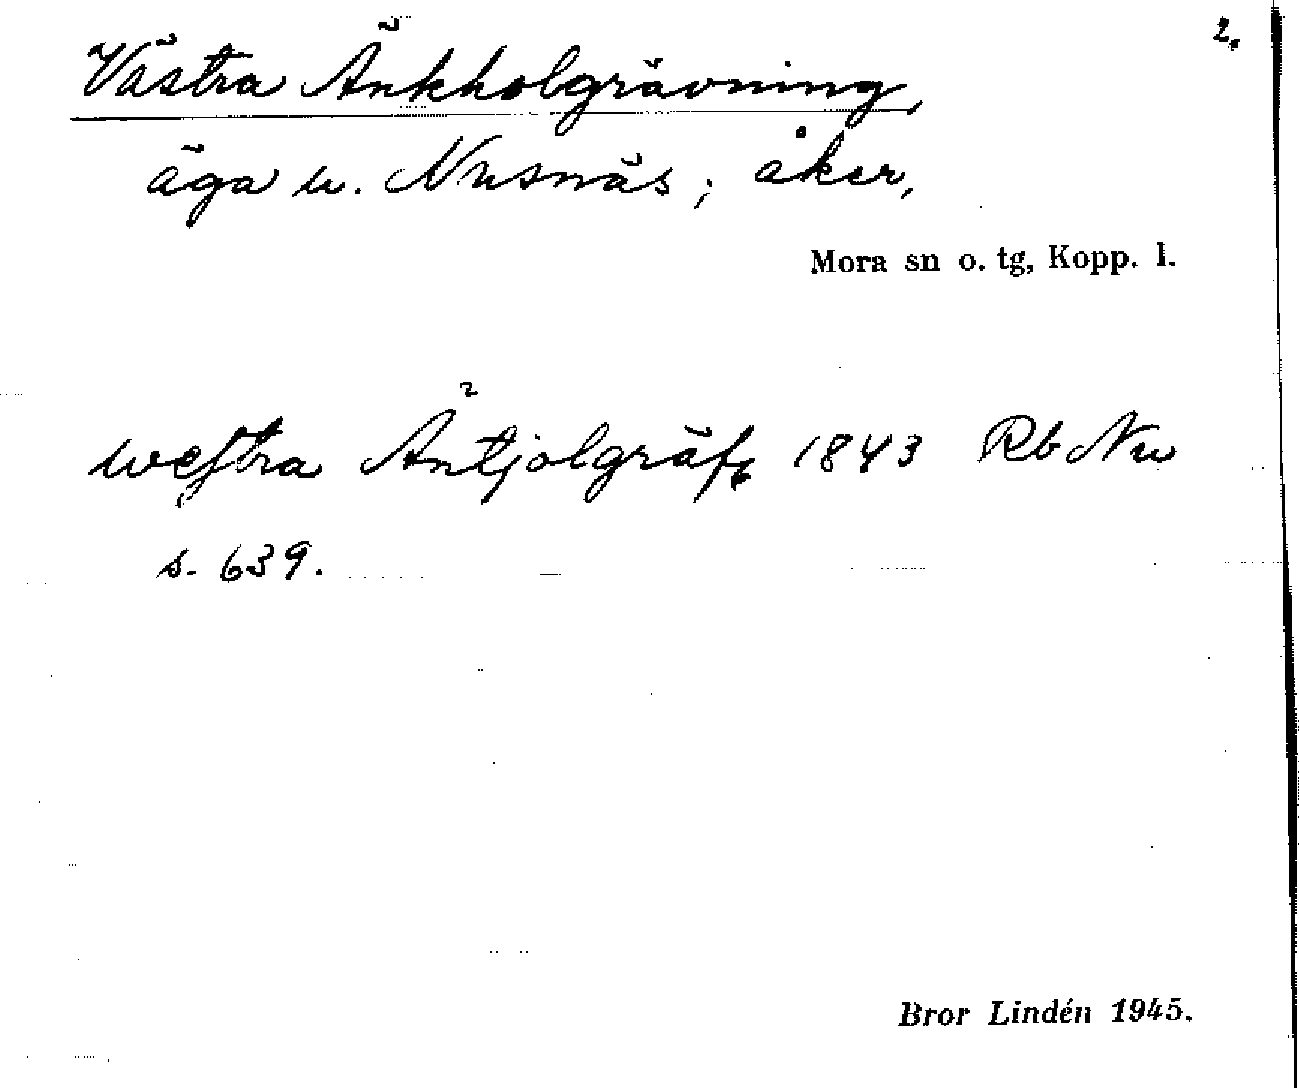 2.
Västra Änkholgrävning,
äga u. Nusnäs; åker,
Mora sn o. tg, Kopp. l.
westra Äntjolgräfg 1843 Rb Nu
s. 639.
Bror Lindén 1945.